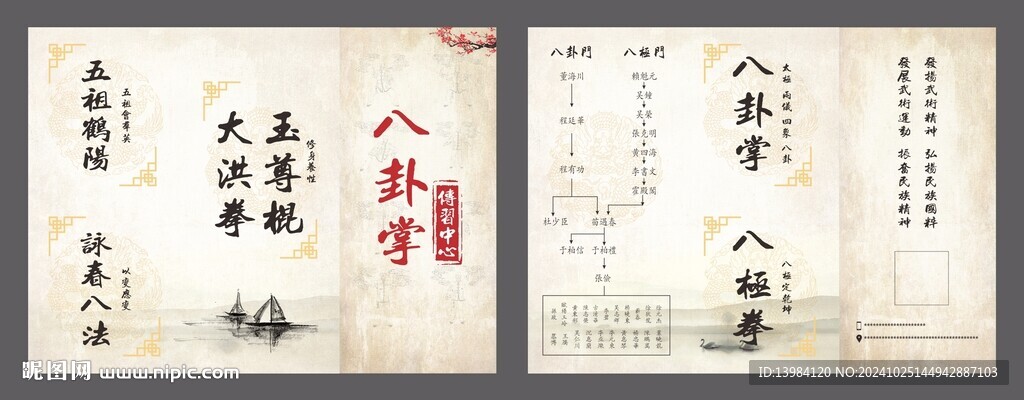 五祖鶴陽
五祖會羣英
詠春八法
以變應變
玉尊棍
大洪拳
修身養性
八卦掌
傳習中心
八卦門
八極門
董海川
程廷華
程有功
杜少臣
苗遇春
于柏信
于柏禮
張儉
賴魁元
吴鐘
吴榮
張克明
黄四海
李書文
霍殿閣
八卦掌
太極 兩儀 四象 八卦
八極拳
八極定乾坤
發揚武術精神 弘揚民族國粹
發展武術運動 振奮民族精神
昵图网 www.nipic.com
ID:13984120 NO:20241025144942887103